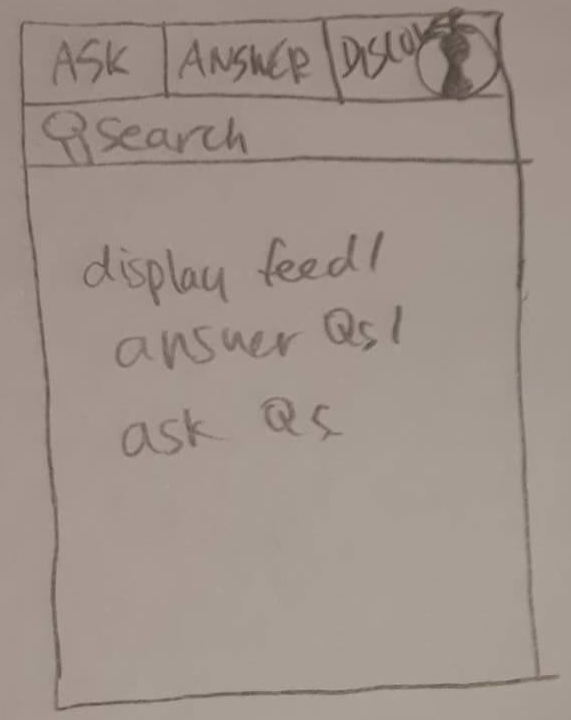 ASK ANSWER DISCOVER
Search
display feed/
answer Qs/
ask Qs